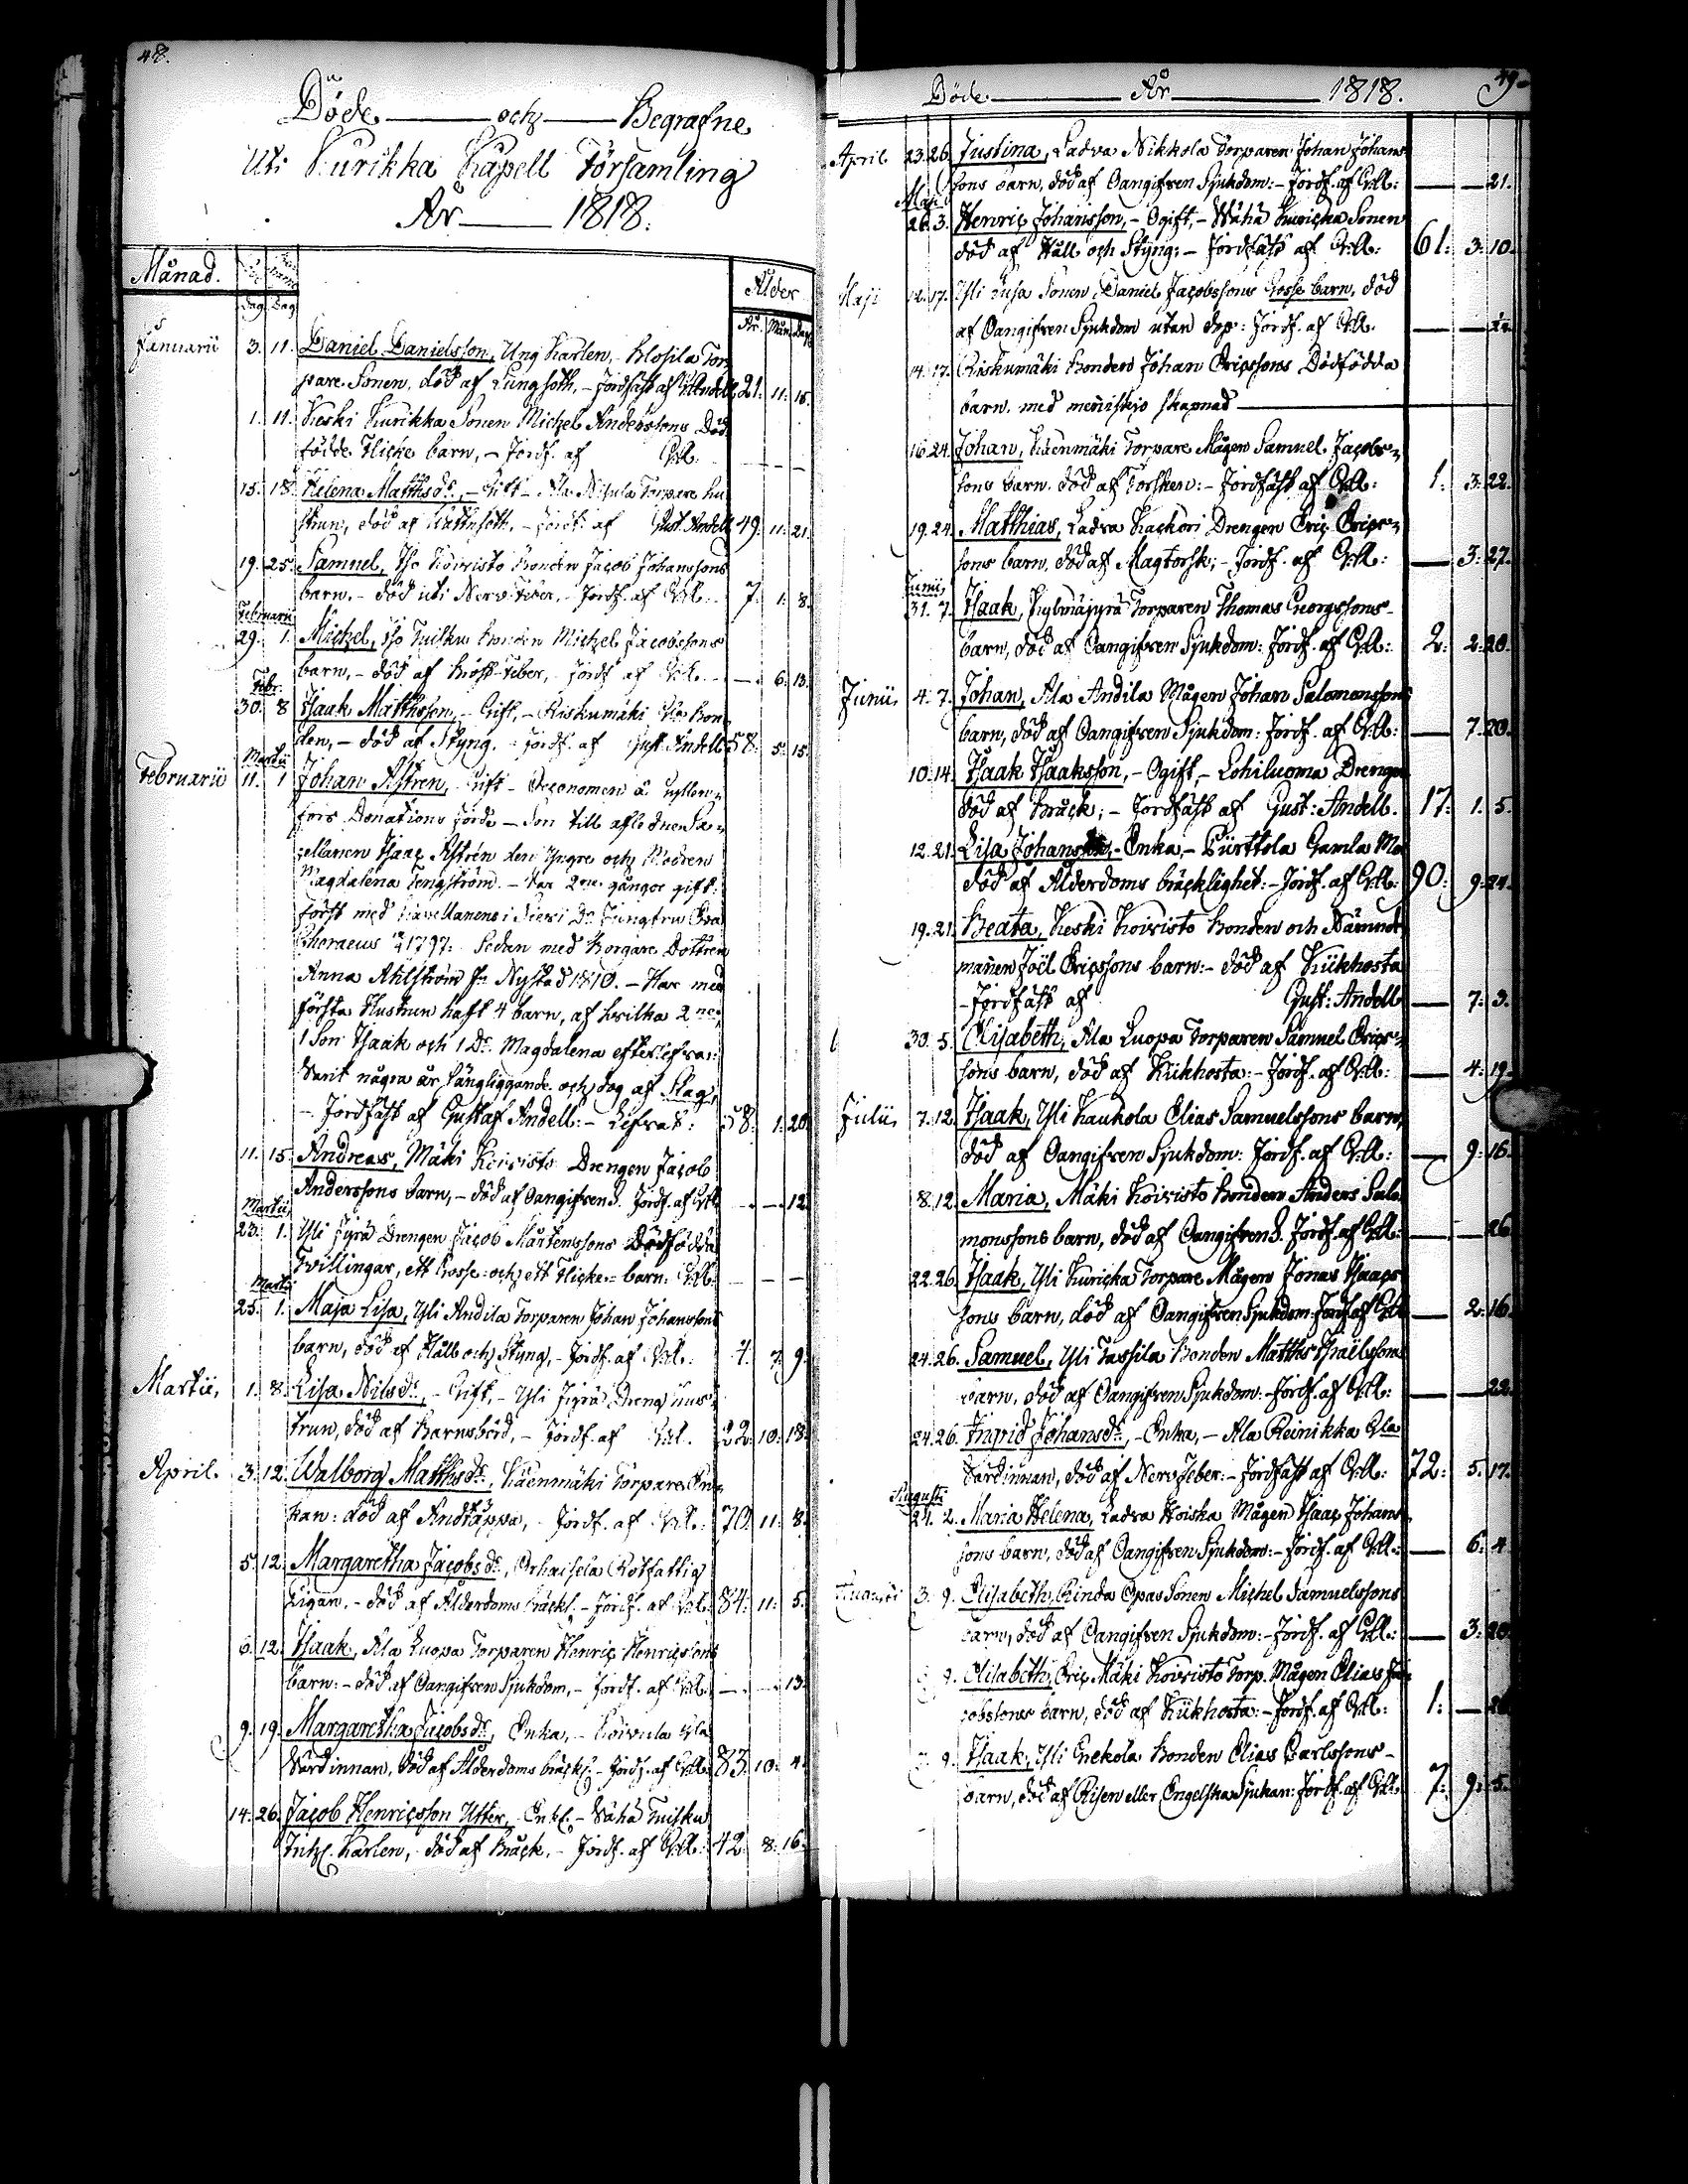 48.
Döde och Begrafne
Uti Kurikka Capell Församling
År 1818.
Månad.
Dag Dag
Ålder
År. Mån. Dag.
Januarii 3. 11. Daniel Danielsson, Ung Karlen, Klosila Tor
pare Sonen, död af Lungsoth, - Jordfäst af 21: 11: 15.
1. 11. Keski Kurikka Sonen Michel Anderssons Död
födde Flicke barn, - Jordf. af
15. 18. Helena Matthsdr, - Gift - Ala Nisula Torpare hu
strun, död af - Jordf. af Gust. Andell 49. 11: 21.
19. 25. Samuel, Iso Koivisto Bonden Jacob Johanssons
barn, - död uti Nerv-Feber, - Jordf. af 7. 1: 8.
Februarii
29. 1. Michel, Iso Tuisku Bonden Michel Jacobssons
barn, - död af Bröst-Feber, Jordf. af 6. 13.
Febr.
30. 8 Isaak Matthsson, - Gift, - Riskumäki Bon
den, - död af Styng. - Jordf. af Gust. Andell 58: 5: 15.
Martii
Februarii 11. 1 Johan Astren, Gift - Oeconomen å Gyllen,,
fors Donations Jorde - Son till aflednen Ca,,
pellanen Isaac Astrén den Yngre och Modren
Magdalena Tengström. - Var 2ne gångor gift:
först med Capellanens i Dr Jungfru
Choraeus 1797: Sedan med Borgare Dottren
Anna Ahlström fr. Nystad 1810. - Har med
första Hustrun haft 4 barn, af hvilka 2ne,
1 Son Isaak och 1 Dr. Magdalena efterlefva:
Varit några år sängliggande och dog af Slag,
- Jordfäst af Gustaf Andell: - Lefvat: 58: 1: 20.
11. 15. Andreas, Mäki Koivisto Drengen Jacob
Anderssons barn, - död af Oangifven S. Jordf. af 12.
Martii,
23. 1. Yli Jyrä Drengen Jacob Mårtenssons Dödfödda
Tvillingar, ett Gosse- och ett Flicke- barn:
Martii
25. 1. Maja Lisa, Yli Andila Torparen Johan Johanssons
barn, död af Håll och Styng, - Jordf. af 4. 7. 9.
Martii, 1. 8. Lisa Nilsdr, - Gift, - Yli Jyrä Dreng hus,,
trun, död af Barnsbörd, - Jordf. af 22. 10. 18.
April. 3. 12. Walborg Matthsdr, Käenmäki Torpare En,,
kan: död af Andtäppa, - Jordf. af 70 11: 8.
5. 12. Margaretha Jacobsdr, Rotfattig
- död af Alderdoms bräckl. - Jordf. af 84: 11: 5.
6. 12. Isaak, Ala Luopa Torparen Henric Henricsons
barn: - död af Oangifven Sjukdom, - Jordf. af 13.
9. 19. Margaretha Jacobsdr, Enka, - Koivula Gla
Värdinnan, död af Ålderdoms bräckl. - Jordf. af 83 10: 4.
14. 26. Jacob Henricsson Utter, Enkl. - Vähä Tuisku
Karlen, död af Bråck. - Jordf. af 42 8: 16.
Döde År 1818. 49
April 23. 26. Justina, Ladva Nikkola Torparen Johan Johans
sons barn, död af Oangifven Sjukdom: - Jordf. af 21.
Maji
26. 3. Henric Johansson, - Ogift, - Wähä Kuricka Sonen
död af Håll och Styng; - Jordfäst af 61: 3: 10.
Maji 12. 17. Yli Sonen Daniel Jacobssons Gosse barn, död
af Oangifven Sjukdom utan dop: Jordf. af
14. 17. Riskumäki Bonden Johan Ericssons Dödfödda
barn, med menniskjo skapnad
16. 24. Johan, Käenmäki Torpare Mågen Samuel Jacobs,,
sons barn, död af Torsken: - Jordfäst af 1. 3: 22.
19. 24. Matthias, Ladva Kackori Drengen Eric Erics,,
sons barn, död af Magtorsk; - Jordf. af 3: 27.
Junii,
31. 7. Isaak, Torparen Thomas Georgssons
barn, död af Oangifven Sjukdom: Jordf. af 2: 2: 20.
Junii, 4. 7. Johan, Ala Andila Mågen Johan Salomonssons
barn, död af Oangifven Sjukdom: Jordf. af 7. 20.
10. 14. Isaak Isaaksson, - Ogift, - Lohiluoma Drengen
död af Bråck; - Jordfäst af Gust: Andell. 17: 1: 5.
12. 21. Lisa Johansdr, - Enka, - Piirttola Gamla Mo
död af Ålderdoms bräcklighet: - Jordf. af 90: 9: 24.
19. 21. Beata, Keski Koivisto Bonden och Nämnde
mannen Joël Ericssons barn: - död af Kikhosta
- Jordfäst af Gust: Andell 7: 3.
30. 5. Elisabeth, Ala Luopa Torparen Samuel Erics,,
sons barn, död af Kikhosta: - Jordf. af 4: 19.
Julii, 7. 12. Isaak, Yli Kaukola Elias Samuelssons barn,
död af Oangifven Sjukdom: Jordf. af 9: 16.
8. 12. Maria, Mäki Koivisto Bonden Anders Salo
monssons barn, död af Oangifven S. Jordf. af 26
22. 26. Isaak, Yli Kuricka Torpare Mågen Jonas Isaacs
sons barn, död af Oangifven Sjukdom. Jordf. af 2: 16.
24. 26. Samuel, Yli Tassila Bonden Matths Israëlssons
barn, död af Oangifven Sjukdom: - Jordf. af 22.
24. 26. Ingrid Johansdr, - Enka, - Ala Reinikka Gla
Värdinnan, död af Nerv Feber: - Jordfäst af 72: 5. 17.
Augusti
24. 2. Maria Helena, Ladva Hoiska Mågen Isaac Johans
sons barn, död af Oangifven Sjukdom: - Jordf. af 6: 4
Augusti 3. 9. Elisabeth, Rinda Opas Sonen Michel Samuelssons
barn, död af Oangifven Sjukdom: - Jordf. af 3: 20
9. Elisabeth, Eric Mäki Koivisto Torp. Mågen Elias Ja
cobssons barn, död af Kikhosta: - Jordf. af 1:
9. Isaak, Yli Enekola Bonden Elias Carlssons
barn, död af Risen eller Engelska Sjukan: Jordf. af 7: 9: 5.